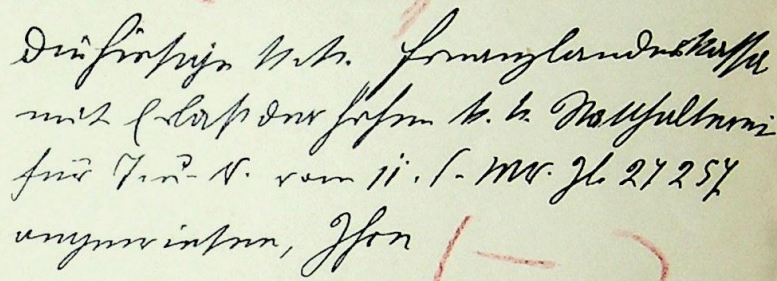 Die hiesige k.k. Finanzlandeskassa
mit Erlaß der hohen k. k. Statthalterei
für T. u. V. vom 11. l. Mts. Zl. 27257
angewiesen, Ihre